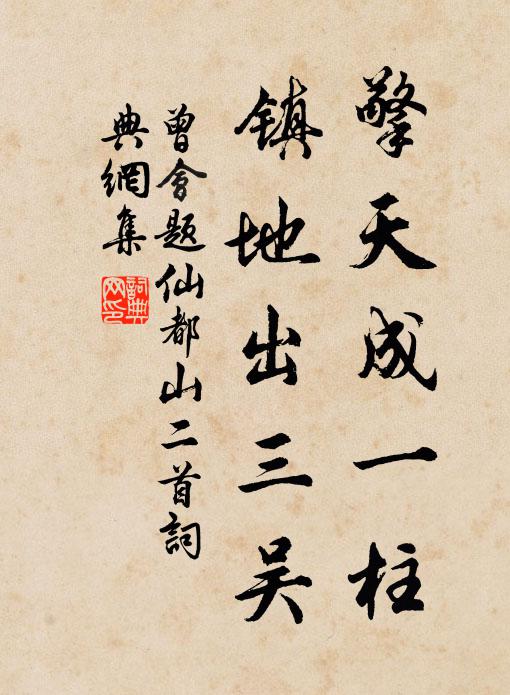 擎天成一柱
镇地出三吴
曾會题仙都山二首詞
典網集
詞典
网印